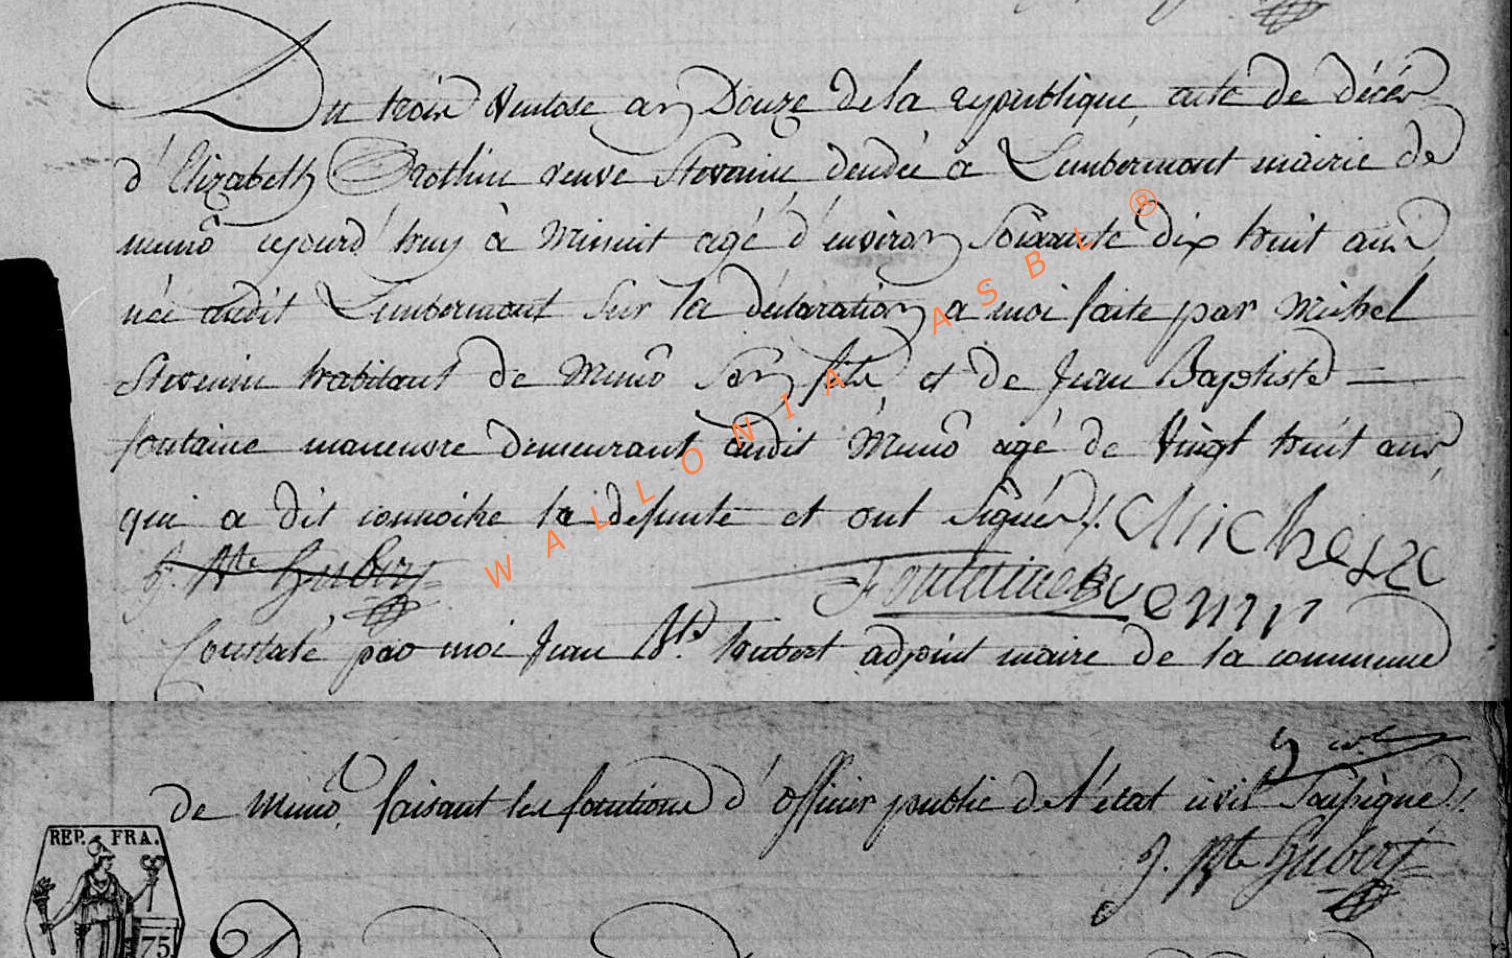 Du trois Ventose an Douze de la republique, acte de décés
d'Elizabeth Grothin veuve Stevenin deudée à Lambermont mairie de
munô cejourd'huy à Minuit agé d'environ Soixante dix huit ans
née audit Lambermont Sur la déclaration a moi faite par Michel
Stevenin habitant de Munô Son fils et de Jean Baptiste
fontaine maneuvre demeurant audit Munô agé de Vingt huit ans
qui a dit connoitre la defunte et ont Signés /. Michel
J. Bte Hubert Fontaine
Constaté par moi Jean Bte hubert adjoint maire de la commune
de Munô, faisant les fonctions d'officier public de l'état civil Soussigné /.
J. Bte Hubert
REP. FRA.
75
WALLONIA ASBL ®